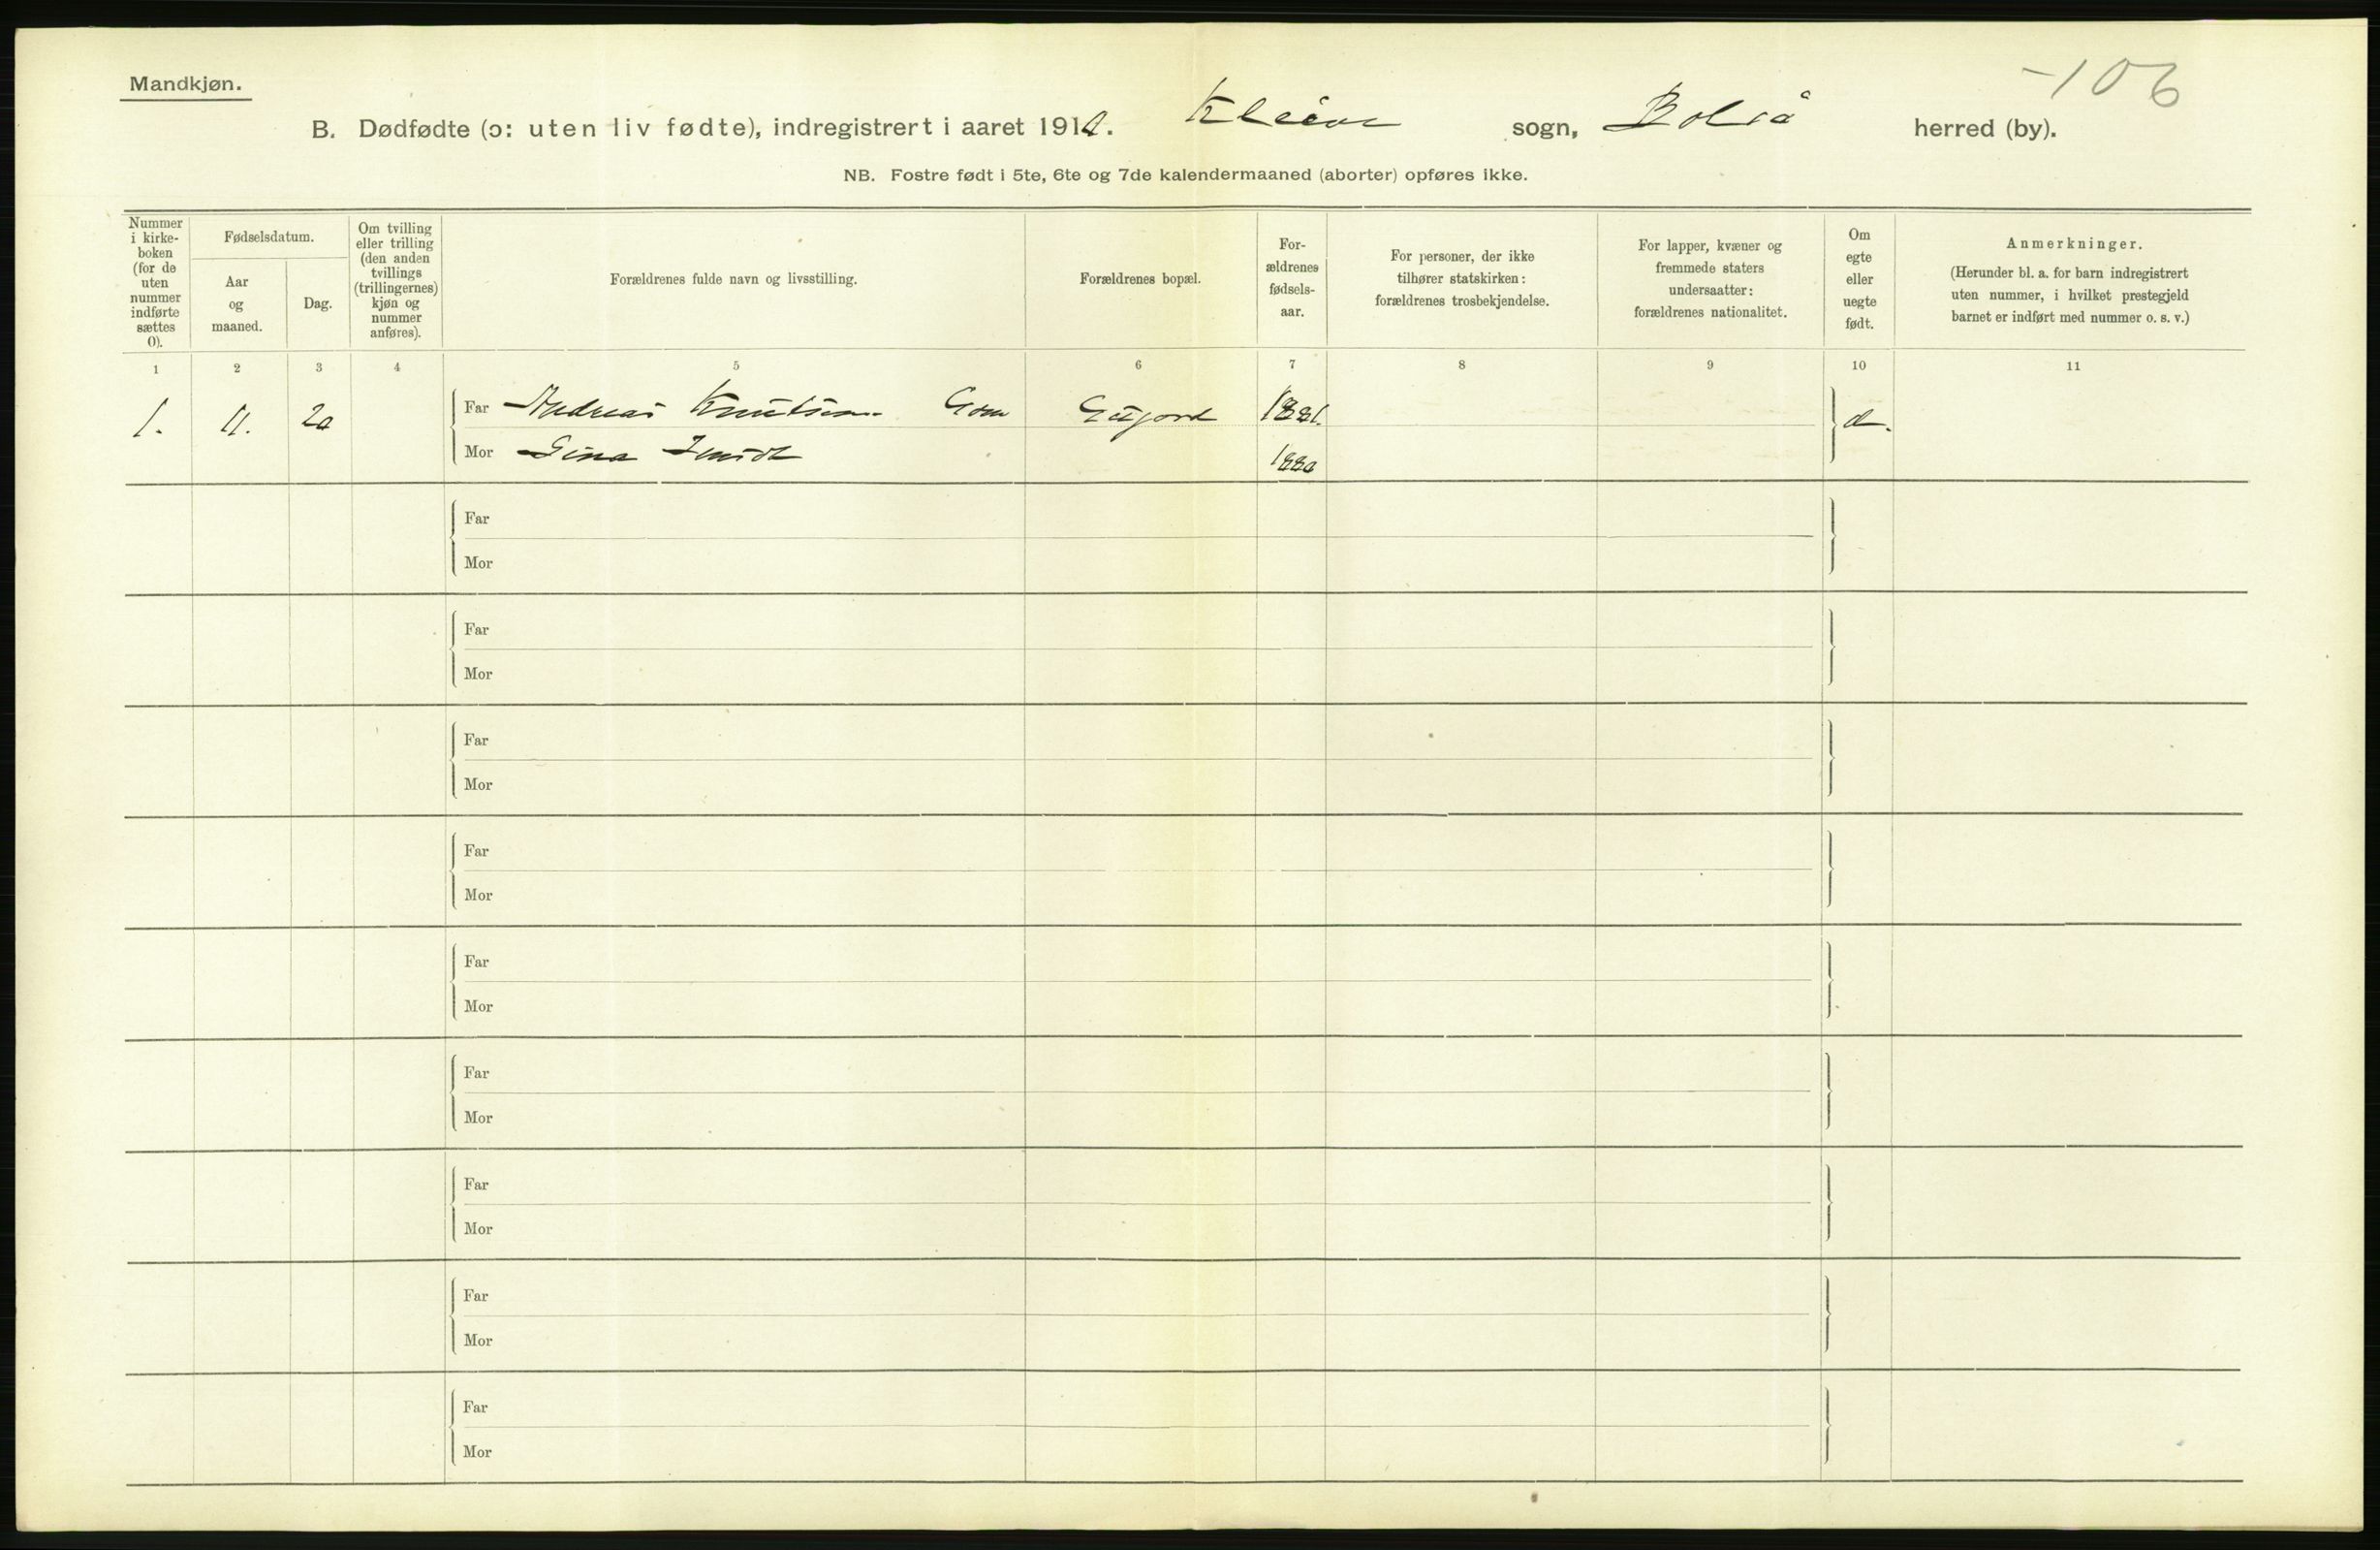 Mandkjøn.
-106
B. Dødfødte (ɔ: uten liv fødte), indregistrert i aaret 1910. Kleive sogn, Bolsø herred (by).
NB. Fostre født i 5te, 6te og 7de kalendermaaned (aborter) opføres ikke.
Nummer i kirke- boken (for de uten nummer indførte sættes 0).
Fødselsdatum.
Aar og maaned.
Dag.
Om tvilling eller trilling (den anden tvillings (trillingernes) kjøn og nummer anføres).
Forældrenes fulde navn og livsstilling.
Forældrenes bopæl.
For- ældrenes fødsels- aar.
For personer, der ikke tilhører statskirken: forældrenes trosbekjendelse.
For lapper, kvæner og fremmede staters undersaatter: forældrenes nationalitet.
Om egte eller uegte født.
Anmerkninger.
(Herunder bl. a. for barn indregistrert uten nummer, i hvilket prestegjeld barnet er indført med nummer o. s. v.)
1 2 3 4 5 6 7 8 9 10 11
1. 11. 20 Far Andreas Knutsen 1881. 
Mor Gina 1880
Far
Mor
Far
Mor
Far
Mor
Far
Mor
Far
Mor
Far
Mor
Far
Mor
Far
Mor
Far
Mor